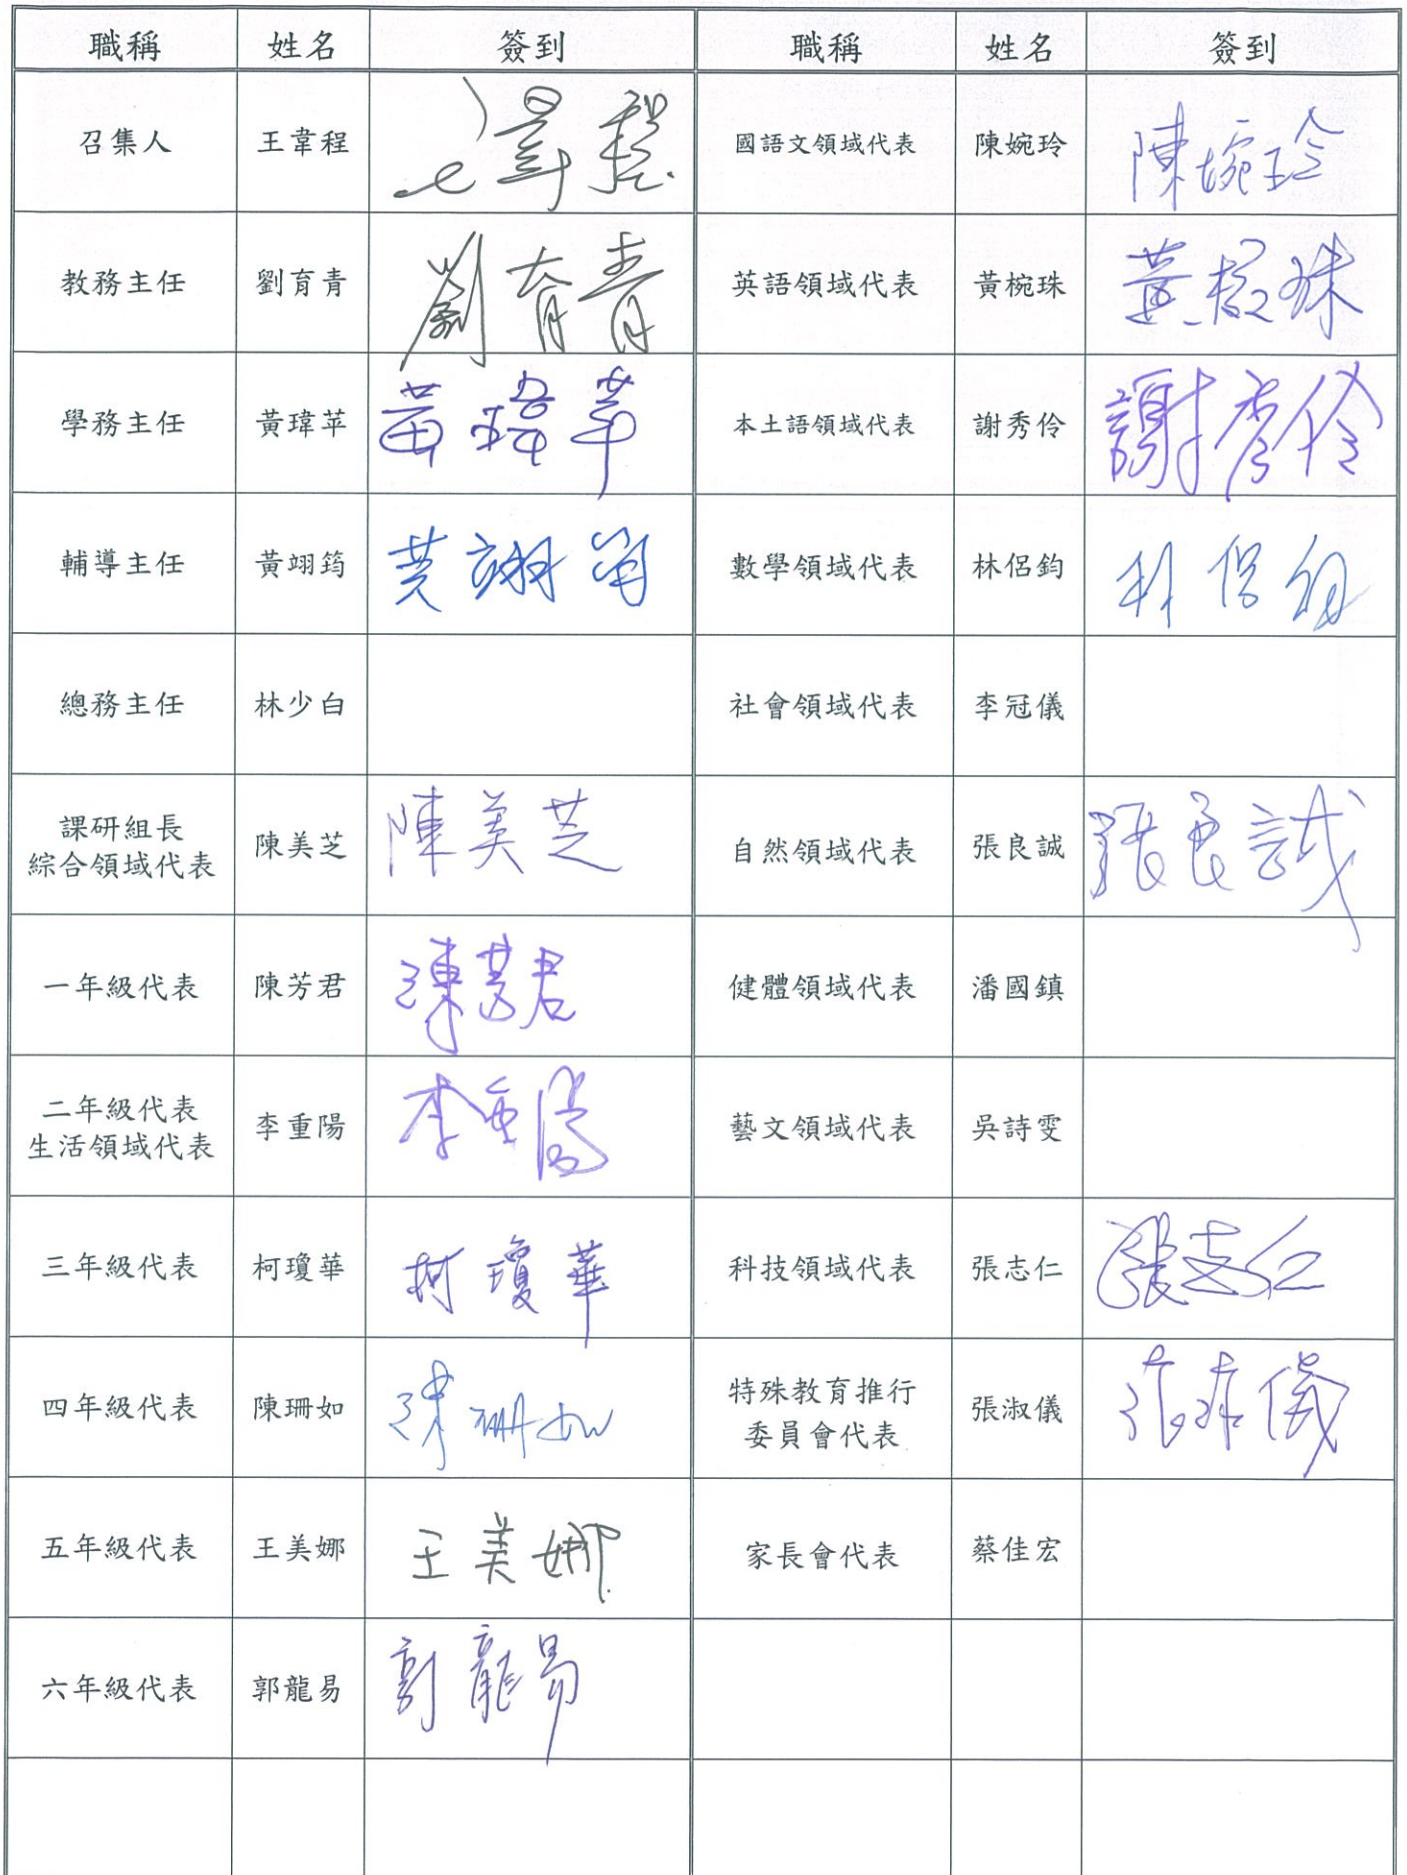 職稱 姓名 簽到 職稱 姓名 簽到
召集人 王韋程 王韋程 國語文領域代表 陳婉玲 陳婉玲
教務主任 劉育青 劉育青 英語領域代表 黃椀珠 黃椀珠
學務主任 黃瑋苹 黃瑋苹 本土語領域代表 謝秀伶 謝秀伶
輔導主任 黃翊筠 黃翊筠 數學領域代表 林侶鈞 林侶鈞
總務主任 林少白 社會領域代表 李冠儀
課研組長
綜合領域代表 陳美芝 陳美芝 自然領域代表 張良誠 張良誠
一年級代表 陳芳君 陳芳君 健體領域代表 潘國鎮
二年級代表
生活領域代表 李重陽 李重陽 藝文領域代表 吳詩雯
三年級代表 柯瓊華 柯瓊華 科技領域代表 張志仁 張志仁
四年級代表 陳珊如 陳珊如 特殊教育推行
委員會代表 張淑儀 張淑儀
五年級代表 王美娜 王美娜 家長會代表 蔡佳宏
六年級代表 郭龍易 郭龍易